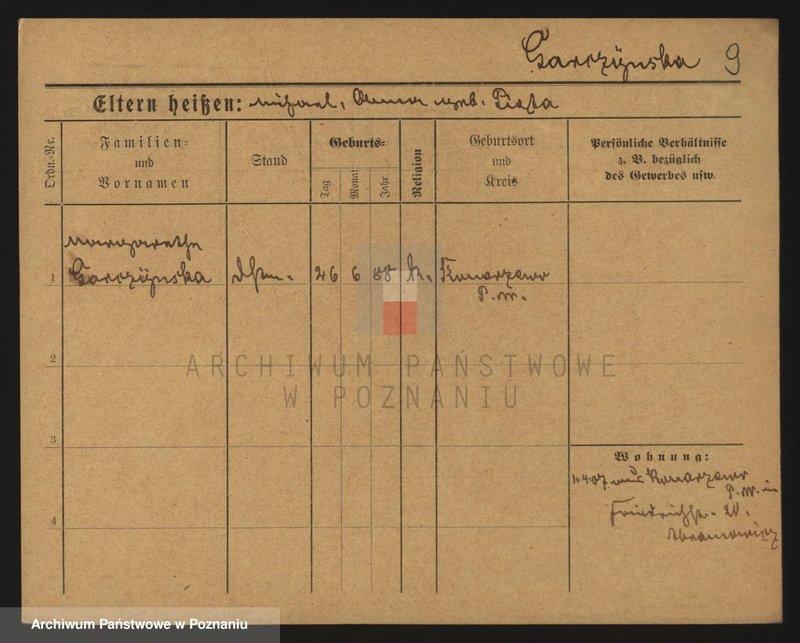 Garczynska 9
Eltern heißen: Michael, Anna geb. Piosa
Ordn.-Nr.
Familien-
und
Vornamen
Stand
Geburts-
Tag
Monat
Jahr
Religion
Geburtsort
und
Kreis
Persönliche Verhältnisse
z. B. bezüglich
des Gewerbes usw.
Margarethe
1 Garczynska 26 6 88 k. Konarzewo
P.W.
2
ARCHIWUM PAŃSTWOWE
W POZNANIU
3
Wohnung:
1.4.07 aus Konarzewo
P.W. in
Friedrichstr.
Abramowicz
4
Archiwum Państwowe w Poznaniu